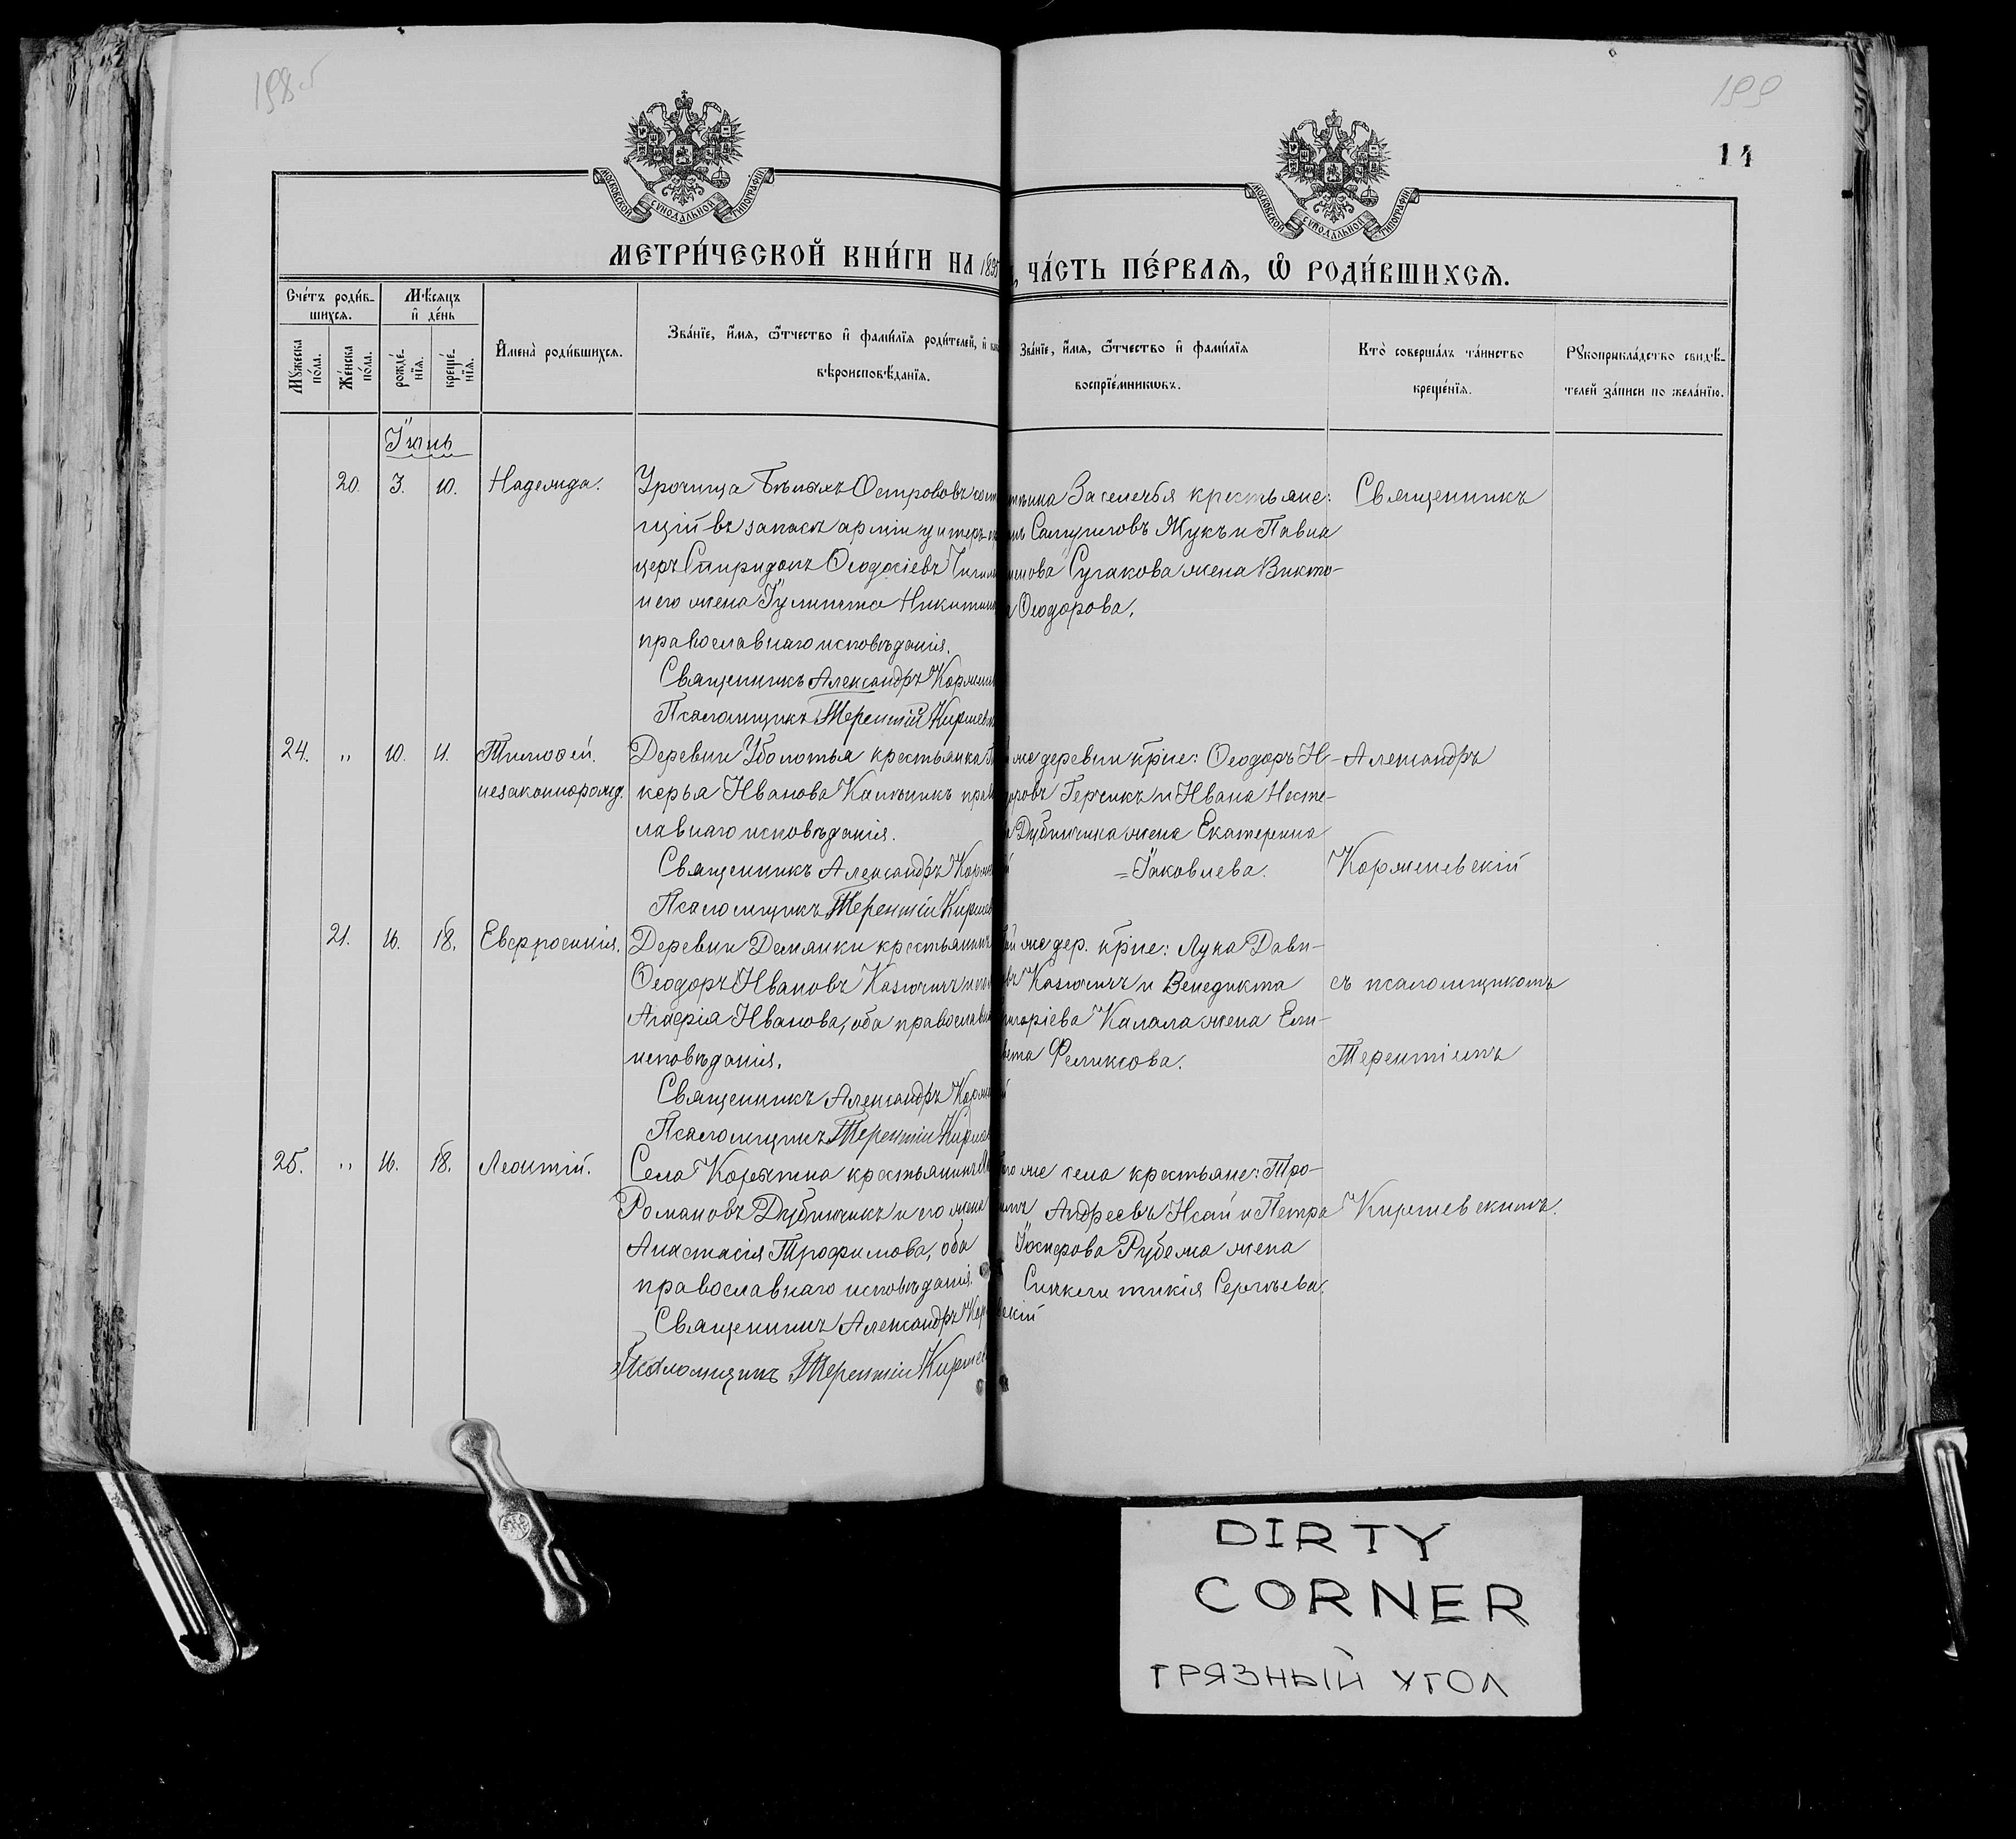 199
14
МОСКОВСКОЙ СѴНОДАЛЬНОЙ ТИПОГРАФІИ
МОСКОВСКОЙ СѴНОДАЛЬНОЙ ТИПОГРАФІИ
МЕТРИ́ЧЕСКОЙ КНИ́ГИ НА
ЧА́СТЬ ПЕ́РВАЯ, Ѡ РОДИ́ВШИХСЯ.
Сче́тъ роди́в-
шихся.
Мѣ́сяцъ
и҆ де́нь
Мꙋжеска
по́ла.
Же́нска
по́ла.
рожде́-
нїя.
креще́-
нїя.
И҆мена̀ роди́вшихся.
Зва́нїе, и҆́мя, ѻ҆́тчество и҆ фами́лїя роди́телей, и҆
вѣроисповѣ́данїя.
Зва́нїе, и҆́мя, ѻ҆́тчество и҆ фами́лїя
воспрїе́мникѡвъ.
Кто̀ соверша́лъ та́инство
креще́нїя.
Рꙋкоприкла́дство свидѣ́-
телей за́писи по жела́нїю.
Іюнь
20. 3. 10. Надежда.
Урочища Бѣлыхъ Острововъ
щій въ запасѣ арміи унтеръ
церъ Спиридонъ Ѳеодосіевъ
и его жена Іулитта Никитина
православнаго исповѣданія.
Священникъ Александръ
Псаломщикъ Терентій
Заселенья крестьяне:
Жукъ и Павла
Сугакова жена Викто-
Ѳеодорова.
Священникъ
24. " 10. 11. Тимоѳей.
незаконнорожд.
Деревни Уболотья крестьянка
керья Иванова
славнаго исповѣданія.
Священникъ Александръ
Псаломщикъ Терентій
же деревни крне: Ѳеодоръ И-
и Ивана Несте-
Дубинчика жена Екатерина
=Іаковлева.
Александръ
Корженевскій
21. 16. 18. Евфросинія.
Деревни Демянки крестьянинъ
Ѳеодоръ Ивановъ Казючиъ
Агафія Иванова, оба
исповѣданія.
Священникъ Александръ
Псаломщикъ Терентій
же дер. крне: Лука Дави-
и Венедикта
Григоріева Калала жена Ели-
Феликсова.
съ псаломщикомъ
Терентіемъ
25. " 16. 18. Леонтій.
Села крестьянинъ
Романовъ Дубинчикъ и его жена
Анастасія Трофимова, оба
православнаго исповѣданія.
Священникъ Александръ
Псаломщикъ Терентій
же села крестьяне: Тро-
Андреевъ Исай и Петра
Іосифова Рубежа жена
Синклитикія Сергѣева.
Киршевскимъ.
DIRTY
CORNER
ГРЯЗНЫЙ УГОЛ